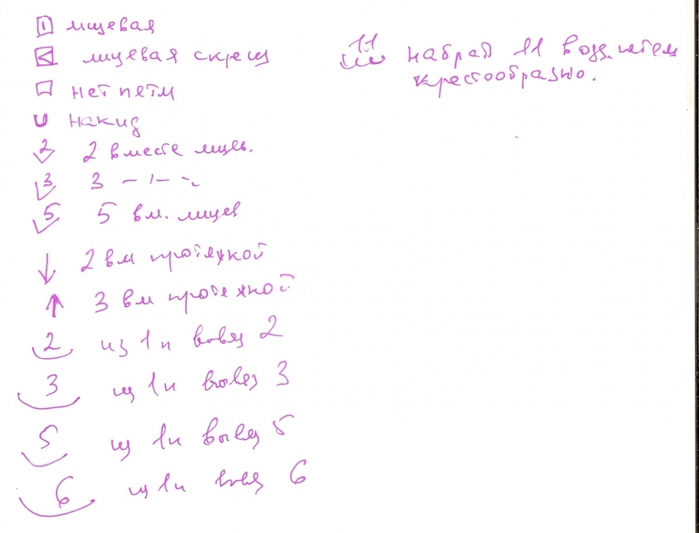 лицевая
лицевая скрещ
нет петли
накид
2 2 вместе лицев.
3 3 -"-
5 5 вм. лицев
2 вм протяжкой
3 вм протяжкой
2 из 1 п вывяз 2
3 из 1 п вывяз 3
5 из 1 п вывяз 5
6 из 1 п вывяз 6
11 набрать 11 возд. петель
крестообразно.